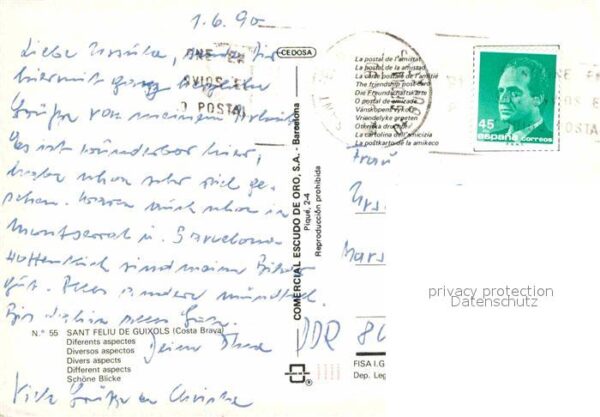 1.6.90
Liebe Ursula, sende Dir
hiermit ganz herzliche
Grüße von meinem Urlaub.
Es ist wunderbar hier,
habe schon sehr viel ge-
sehen. Waren auch schon in
Montserrat u. Barcelona
Hoffentlich sind meine Bilder
gut. Alles andere mündlich.
Bis dahin alles Gute.
Deine
Viele Grüße an
CEDOSA
COMERCIAL ESCUDO DE ORO, S.A. - Barcelona
Piqué, 2-4
Reproducción prohibida
N.º 55 SANT FELIU DE GUIXOLS (Costa Brava)
Diferents aspectes
Diversos aspectos
Divers aspects
Different aspects
Schöne Blicke
La postal de l'amistat
La postal de la amistad
La carte postale de l'amitié
The friendship post card
Die Freundschaftspostkarte
O postal de amizade
Vänskapens vykort
Vriendelijke groeten
La cartolina dell'amicizia
La poŝtkarto de la amikeco
45
PTA
españa correos
Frau
Urs
Mars
DDR 86
privacy protection
Datenschutz
FISA I.G
Dep. Leg